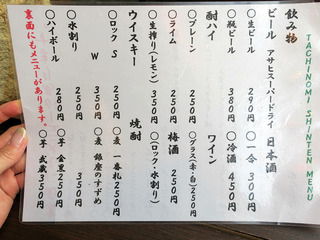 TACHINOMI・SHINTEN MENU
飲み物
ビール アサヒスーパードライ
〇生ビール 290円
〇瓶ビール 380円
酎ハイ
〇プレーン 250円
〇ライム 250円
〇生搾り(レモン) 350円
ウイスキー
〇ロック S 250円
W 350円
〇水割り
〇ハイボール 280円
日本酒
〇一合 300円
〇冷酒 450円
ワイン
〇グラス(赤・白)250円
梅酒 250円
〇(ロック・水割り)
焼酎
〇麦 一番札 250円
〇麦 銀座のすずめ 350円
〇芋 金黒 250円
〇芋 武蔵 350円
裏面にもメニューがあります。